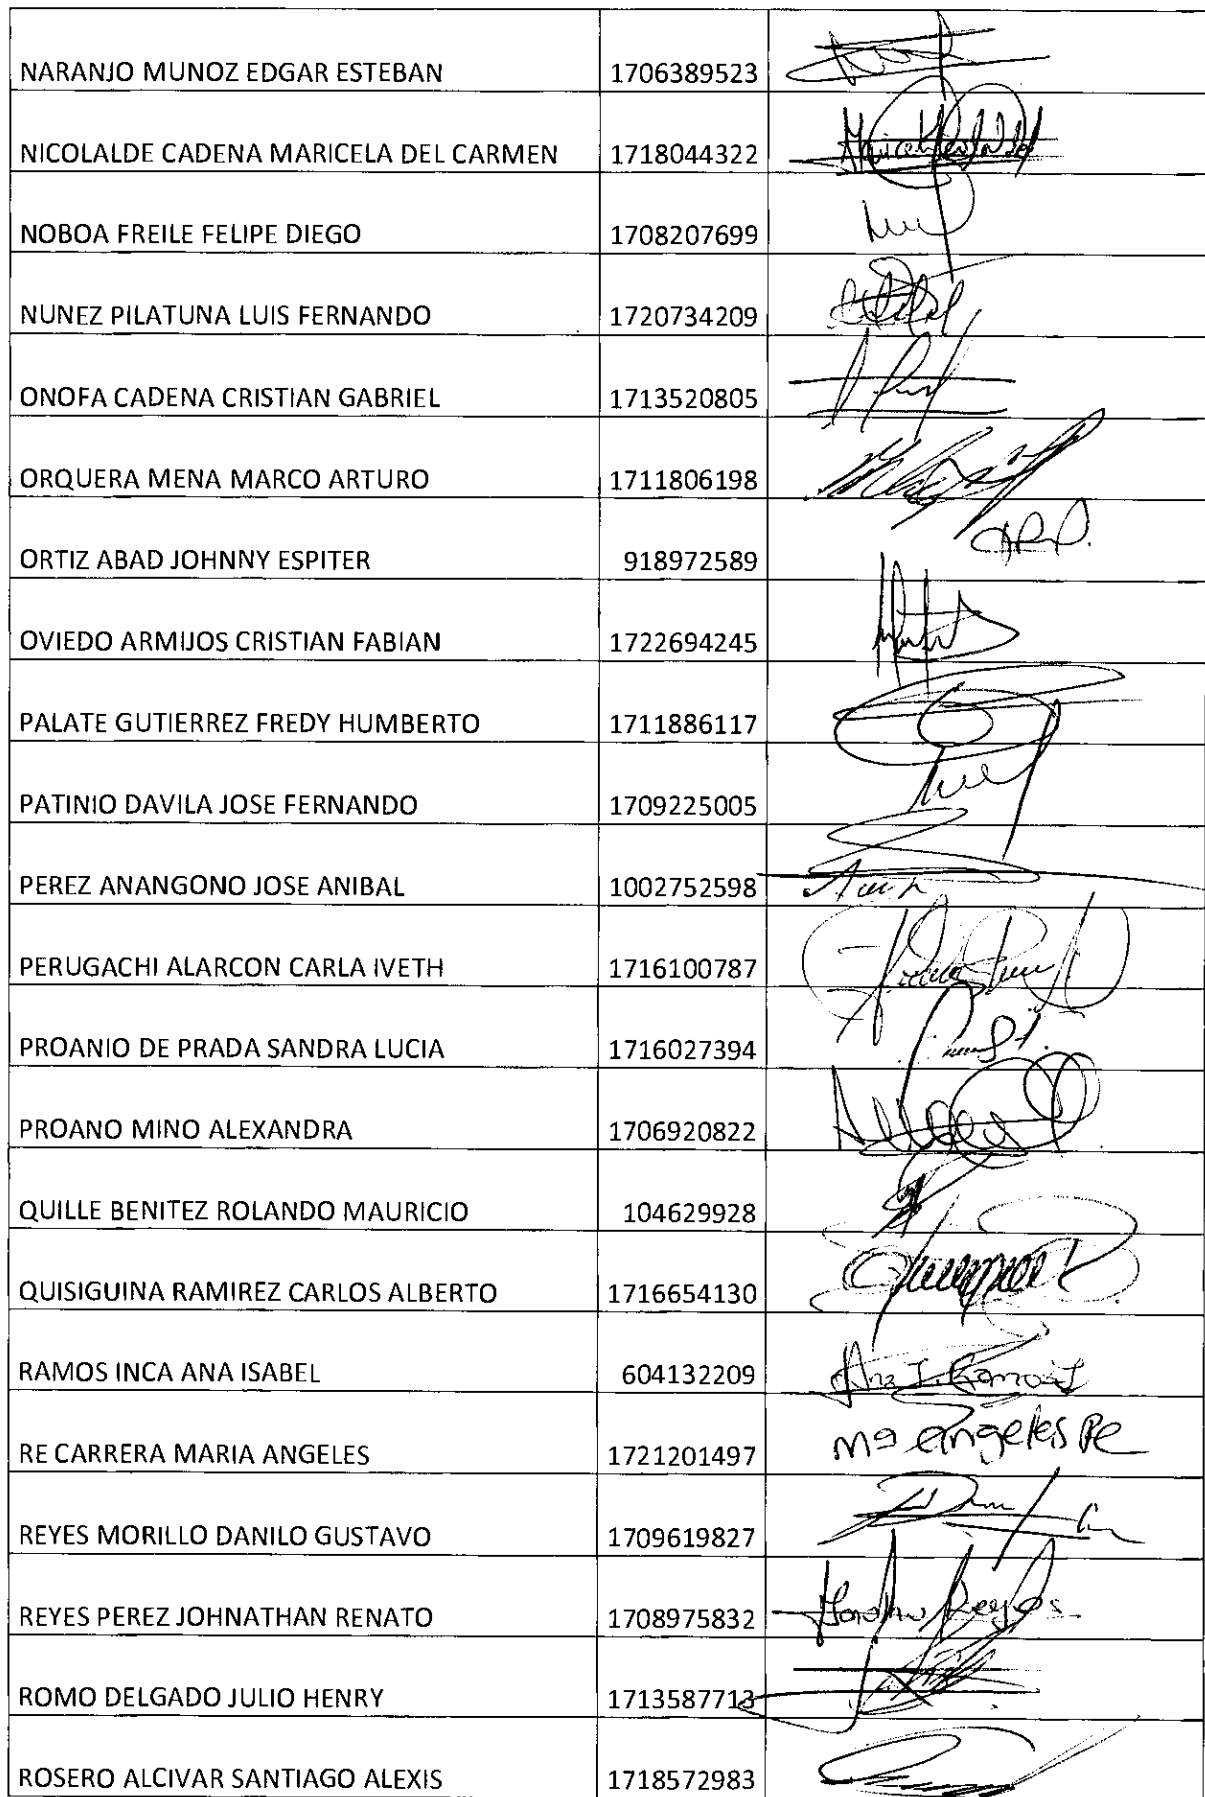 NARANJO MUNOZ EDGAR ESTEBAN 1706389523
NICOLALDE CADENA MARICELA DEL CARMEN 1718044322
NOBOA FREILE FELIPE DIEGO 1708207699
NUNEZ PILATUNA LUIS FERNANDO 1720734209
ONOFA CADENA CRISTIAN GABRIEL 1713520805
ORQUERA MENA MARCO ARTURO 1711806198
ORTIZ ABAD JOHNNY ESPITER 918972589
OVIEDO ARMIJOS CRISTIAN FABIAN 1722694245
PALATE GUTIERREZ FREDY HUMBERTO 1711886117
PATINIO DAVILA JOSE FERNANDO 1709225005
PEREZ ANANGONO JOSE ANIBAL 1002752598
PERUGACHI ALARCON CARLA IVETH 1716100787
PROANIO DE PRADA SANDRA LUCIA 1716027394
PROANO MINO ALEXANDRA 1706920822
QUILLE BENITEZ ROLANDO MAURICIO 104629928
QUISIGUINA RAMIREZ CARLOS ALBERTO 1716654130
RAMOS INCA ANA ISABEL 604132209 Ana I. Ramos I
RE CARRERA MARIA ANGELES 1721201497 Mª Angeles Re
REYES MORILLO DANILO GUSTAVO 1709619827
REYES PEREZ JOHNATHAN RENATO 1708975832 Reyes
ROMO DELGADO JULIO HENRY 1713587713
ROSERO ALCIVAR SANTIAGO ALEXIS 1718572983